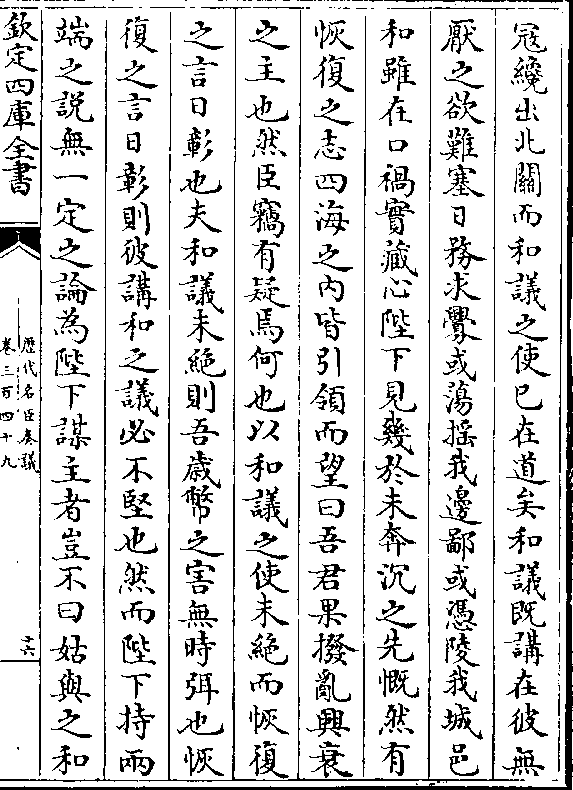 寇纔出北關而和議之使已在道矣和議既講在彼無
厭之欲難塞日務求釁或蕩搖我邊鄙或憑陵我城邑
和雖在口禍實藏心陛下見幾於未奔沉之先慨然有
恢復之志四海之内皆引領而望曰吾君果撥亂興衰
之主也然臣竊有疑焉何也以和議之使未絕而恢復
之言日彰也夫和議未絕則吾歲幣之害無時弭也恢
復之言日彰則彼講和之議必不堅也然而陛下持兩
端之說無一定之論為陛下謀主者豈不曰姑與之和
欽定四庫全書
歷代名臣奏議
卷三百四十九
十六